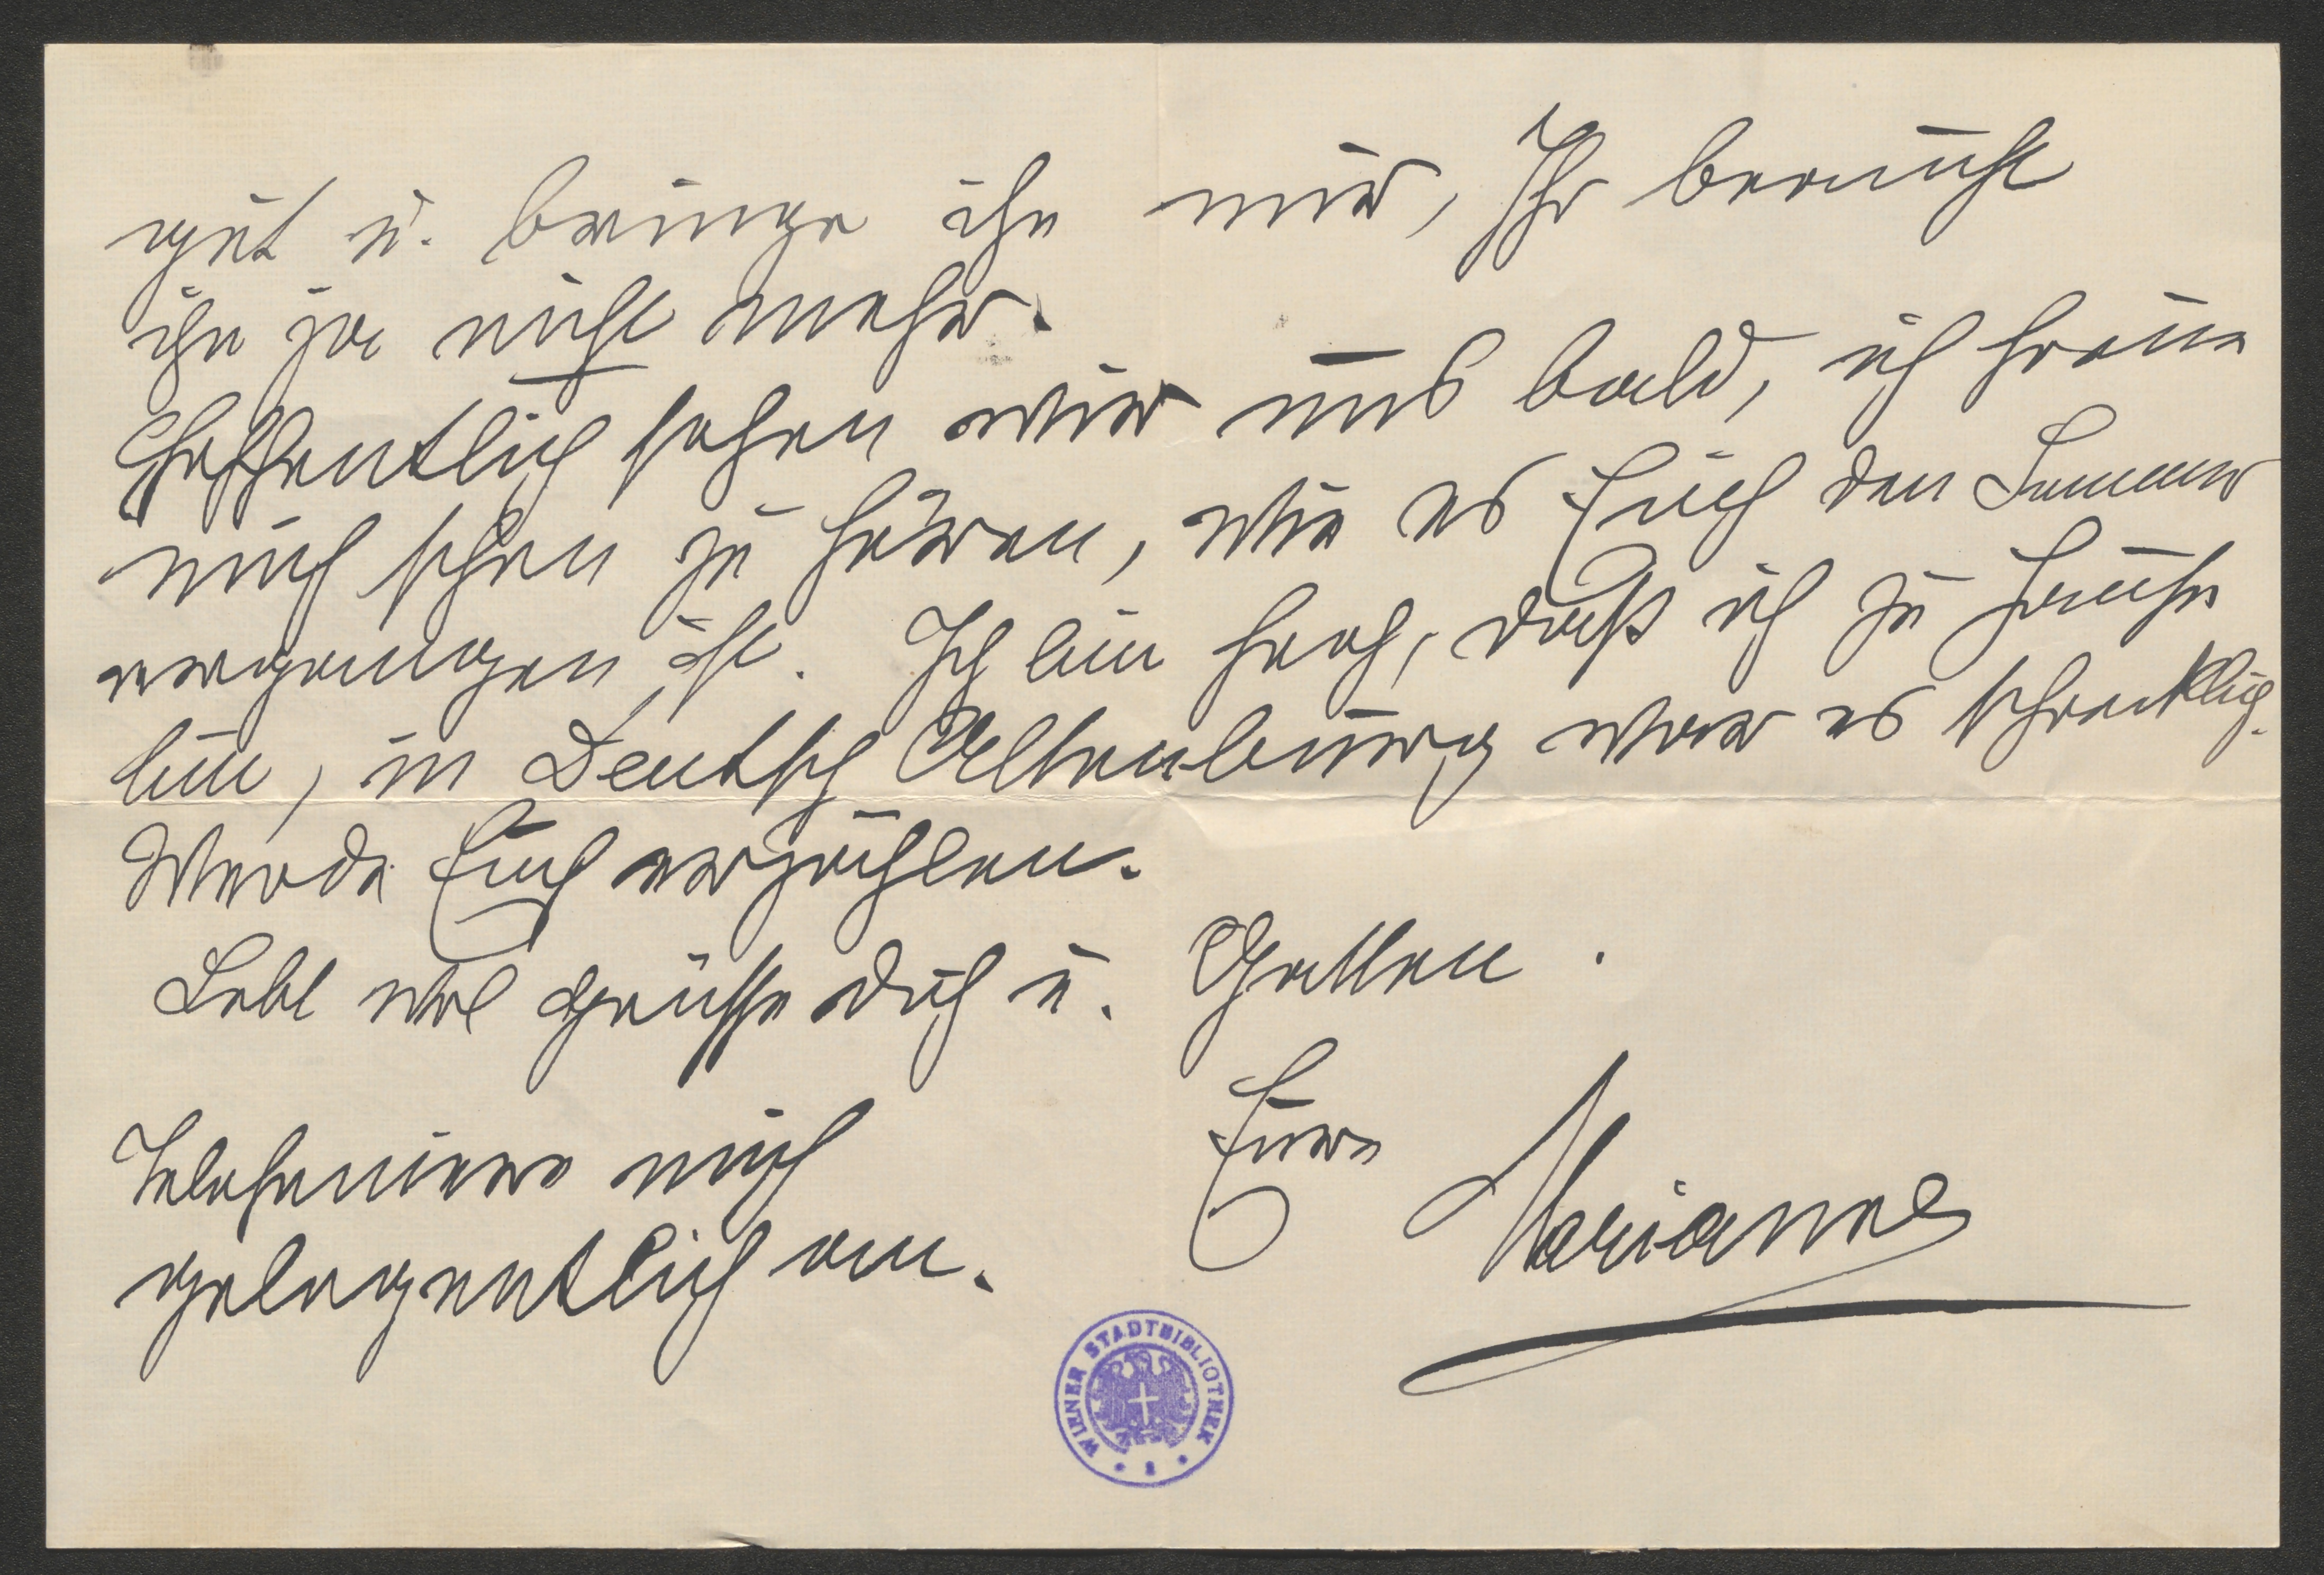 gut u. bringe ihn mir, Ihr braucht
ihn ja nicht mehr.
Hoffentlich sehen wir uns bald, ich freue
mich schon zu hören, wie es Euch den Sommer
ergangen ist. Ich bin froh, daß ich zu Hause
bin, in Deutsch Altenburg war es schrecklich.
Werde Euch erzählen.
Lebt wol grüsse dich u. Gatten.
Eure
Marianne
Telefoniere mich
gelegentlich an.
WIENER STADTBIBLIOTHEK